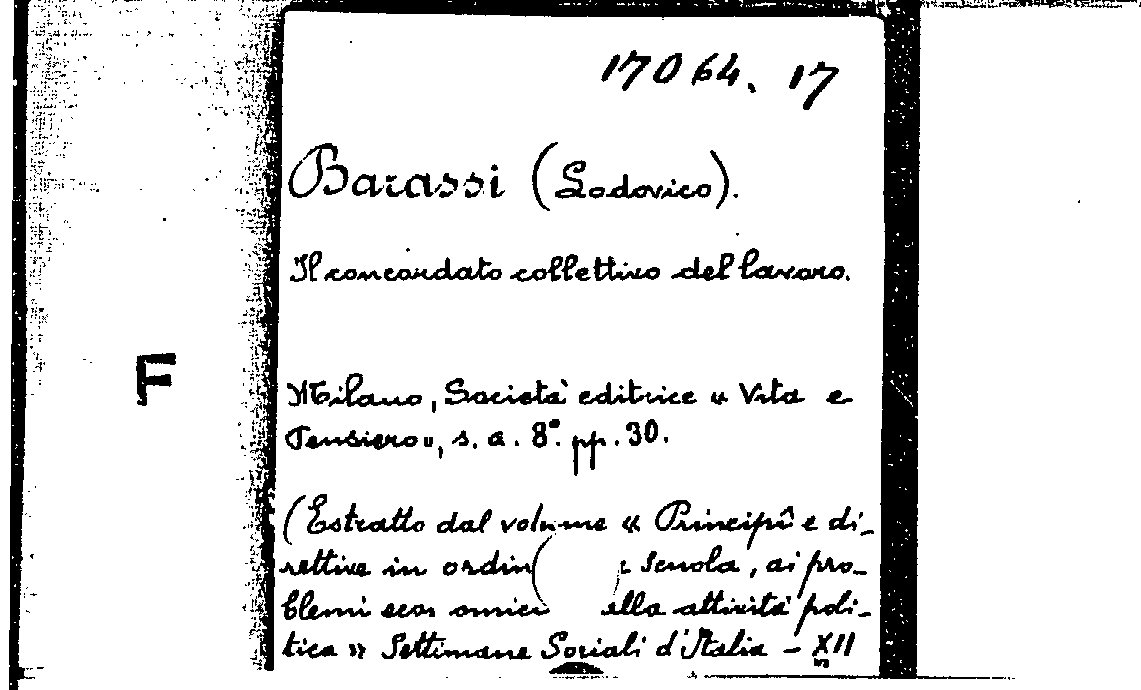 17064. 17
Barassi (Lodovico).
Il concordato collettivo del lavoro.
F
Milano, Società editrice « Vita e
Pensiero», s. a. 8º. pp. 30.
(Estratto dal volume « Principî e di-
rettive in ordin scuola, ai pro-
blemi economici ella attività poli-
tica » Settimane Sociali d'Italia - XII